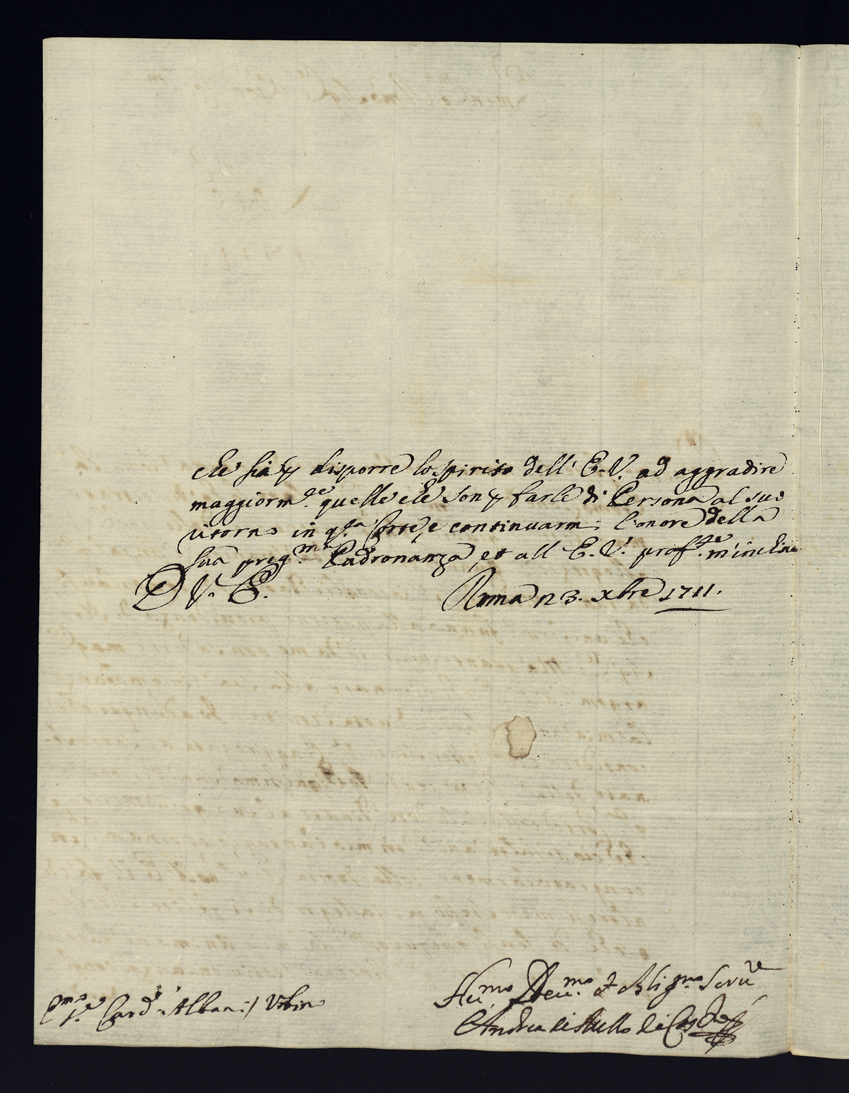 che sia p disporre lo spirito dell' E. V. ad aggradire
maggiorm.te quelle che son p farle di Persona al suo
ritorno in q.ta Corte, e continuarm: l'onore della
sua preg.ma Padronanza, et all E. V. prof.te m'inchino
D. V. E. Roma 23. Xbre 1711.
Hu.mo Dev.mo et Oblig.mo Serv.re
Em.o S.r Card.e Albani / Urbino
Andrea di